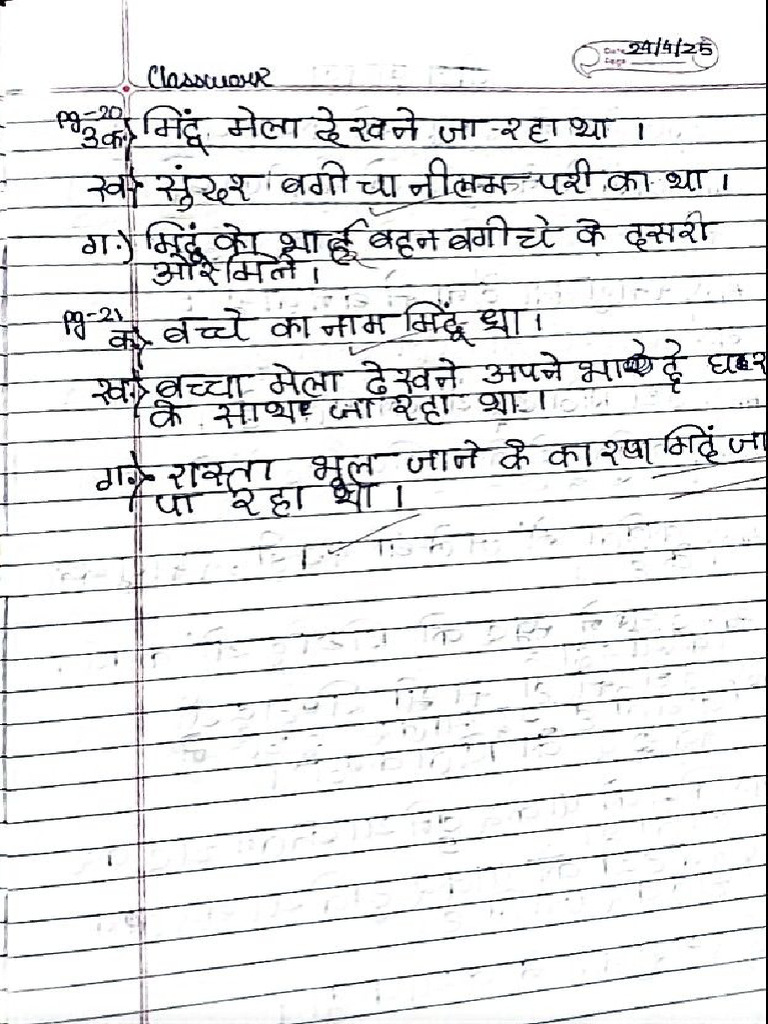 Date 24/4/25
Page
Classwork
pg-20
3क.) मिंटू मेला देखने जा रहा था ।
ख) सुंदर बगीचा नीलम परी का था ।
ग.) मिंटू को भाई बहन बगीचे के दूसरी
ओर मिले ।
pg-21
क) बच्चे का नाम मिंटू था ।
ख) बच्चा मेला देखने अपने
के साथ जा रहा था ।
ग) रास्ता भूल जाने के कारण मिंटू जा
पा रहा था ।